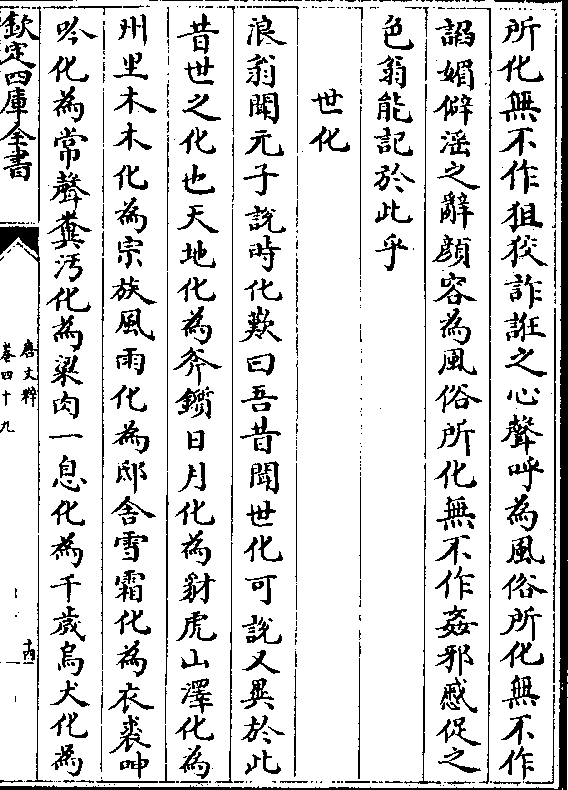 所化無不作狙狡詐誑之心聲呼為風俗所化無不作
諂媚僻滛之辭顔容為風俗所化無不作姦邪慼促之
色翁能記於此乎
世化
浪翁聞元子説時化歎曰吾昔聞世化可説又異於此
昔世之化也天地化為斧鑕日月化為豺虎山澤化為
州里木木化為宗族風雨化為邸舍雪霜化為衣裘呻
吟化為常聲糞汚化為粱肉一息化為千歲烏犬化為
欽定四庫全書
唐文粹
卷四十九